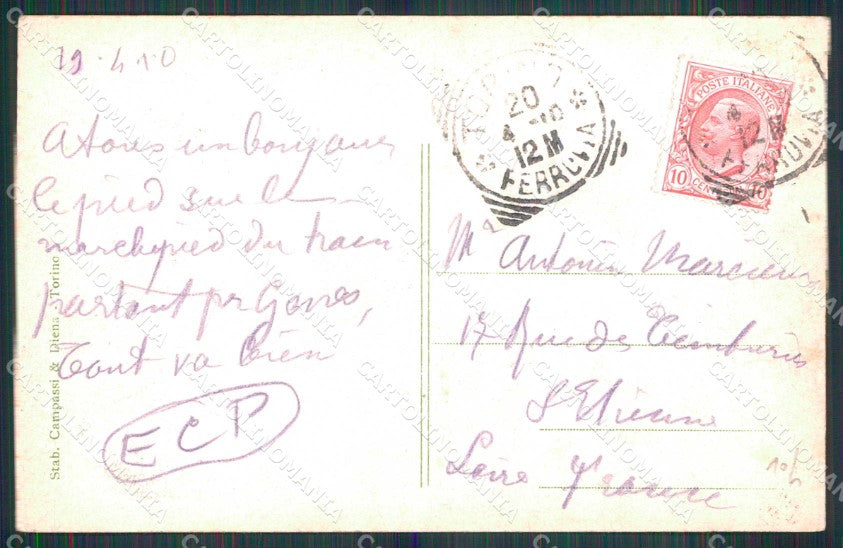 19.4.10
A tous un bonjour
le pied sur le
marchepied du train
partant pr Gênes,
Tout va bien
ECP
Stab. Campassi & Diena - Torino
TORINO
20
4 - 10
12 M
* FERROVIA *
POSTE ITALIANE
10 CENTESIMI 10
12 M
Mr Antonin
17 Rue des
St Etienne
Loire France
CARTOLINOMANIA